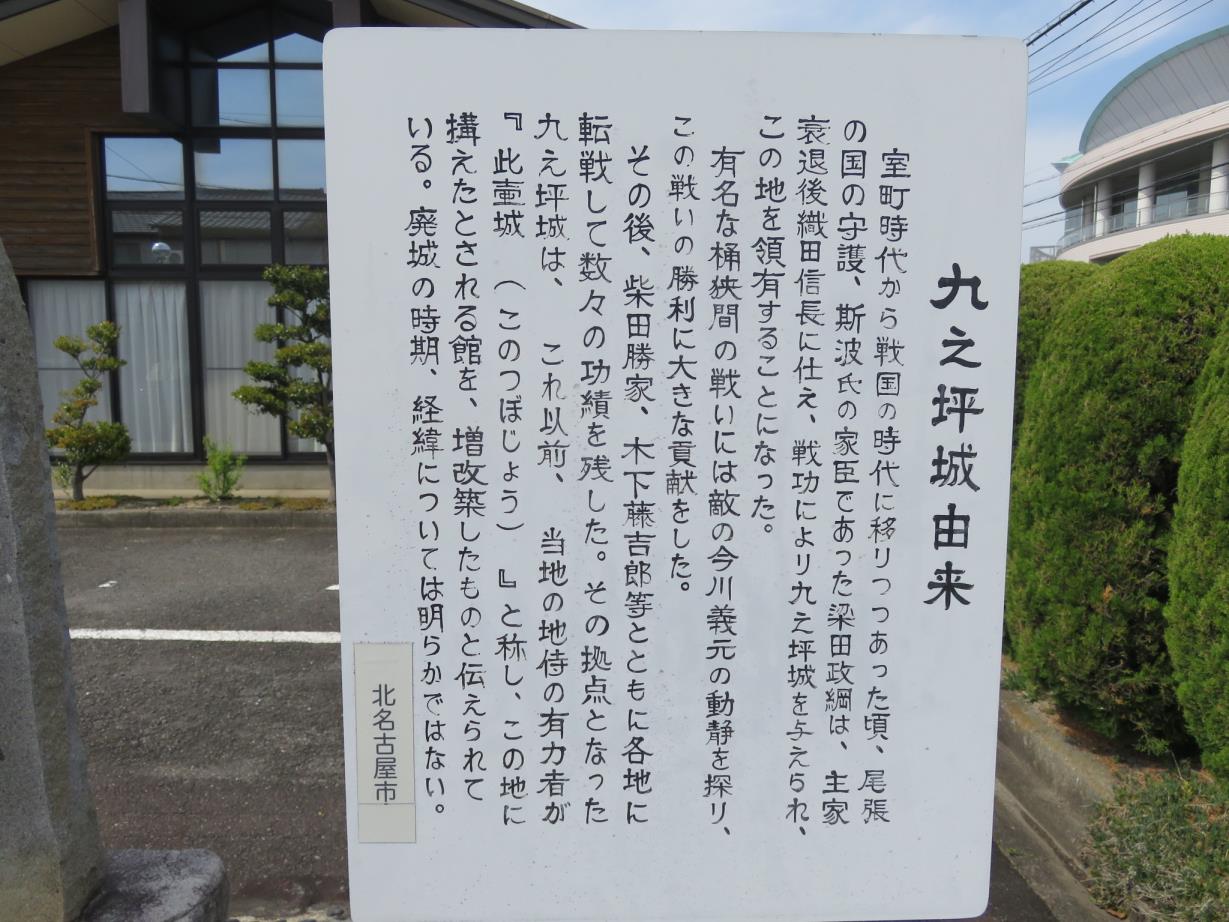 九之坪城由来
室町時代から戦国の時代に移りつつあった頃、尾張
の国の守護、斯波氏の家臣であった梁田政綱は、主家
衰退後織田信長に仕え、戦功により九之坪城を与えられ、
この地を領有することになった。
有名な桶狭間の戦いには敵の今川義元の動静を探り、
この戦いの勝利に大きな貢献をした。
その後、柴田勝家、木下藤吉郎等とともに各地に
転戦して数々の功績を残した。その拠点となった
九之坪城は、これ以前、当地の地侍の有力者が
『此壷城（このつぼじょう）』と称し、この地に
構えたとされる館を、増改築したものと伝えられて
いる。廃城の時期、経緯については明らかではない。
北名古屋市